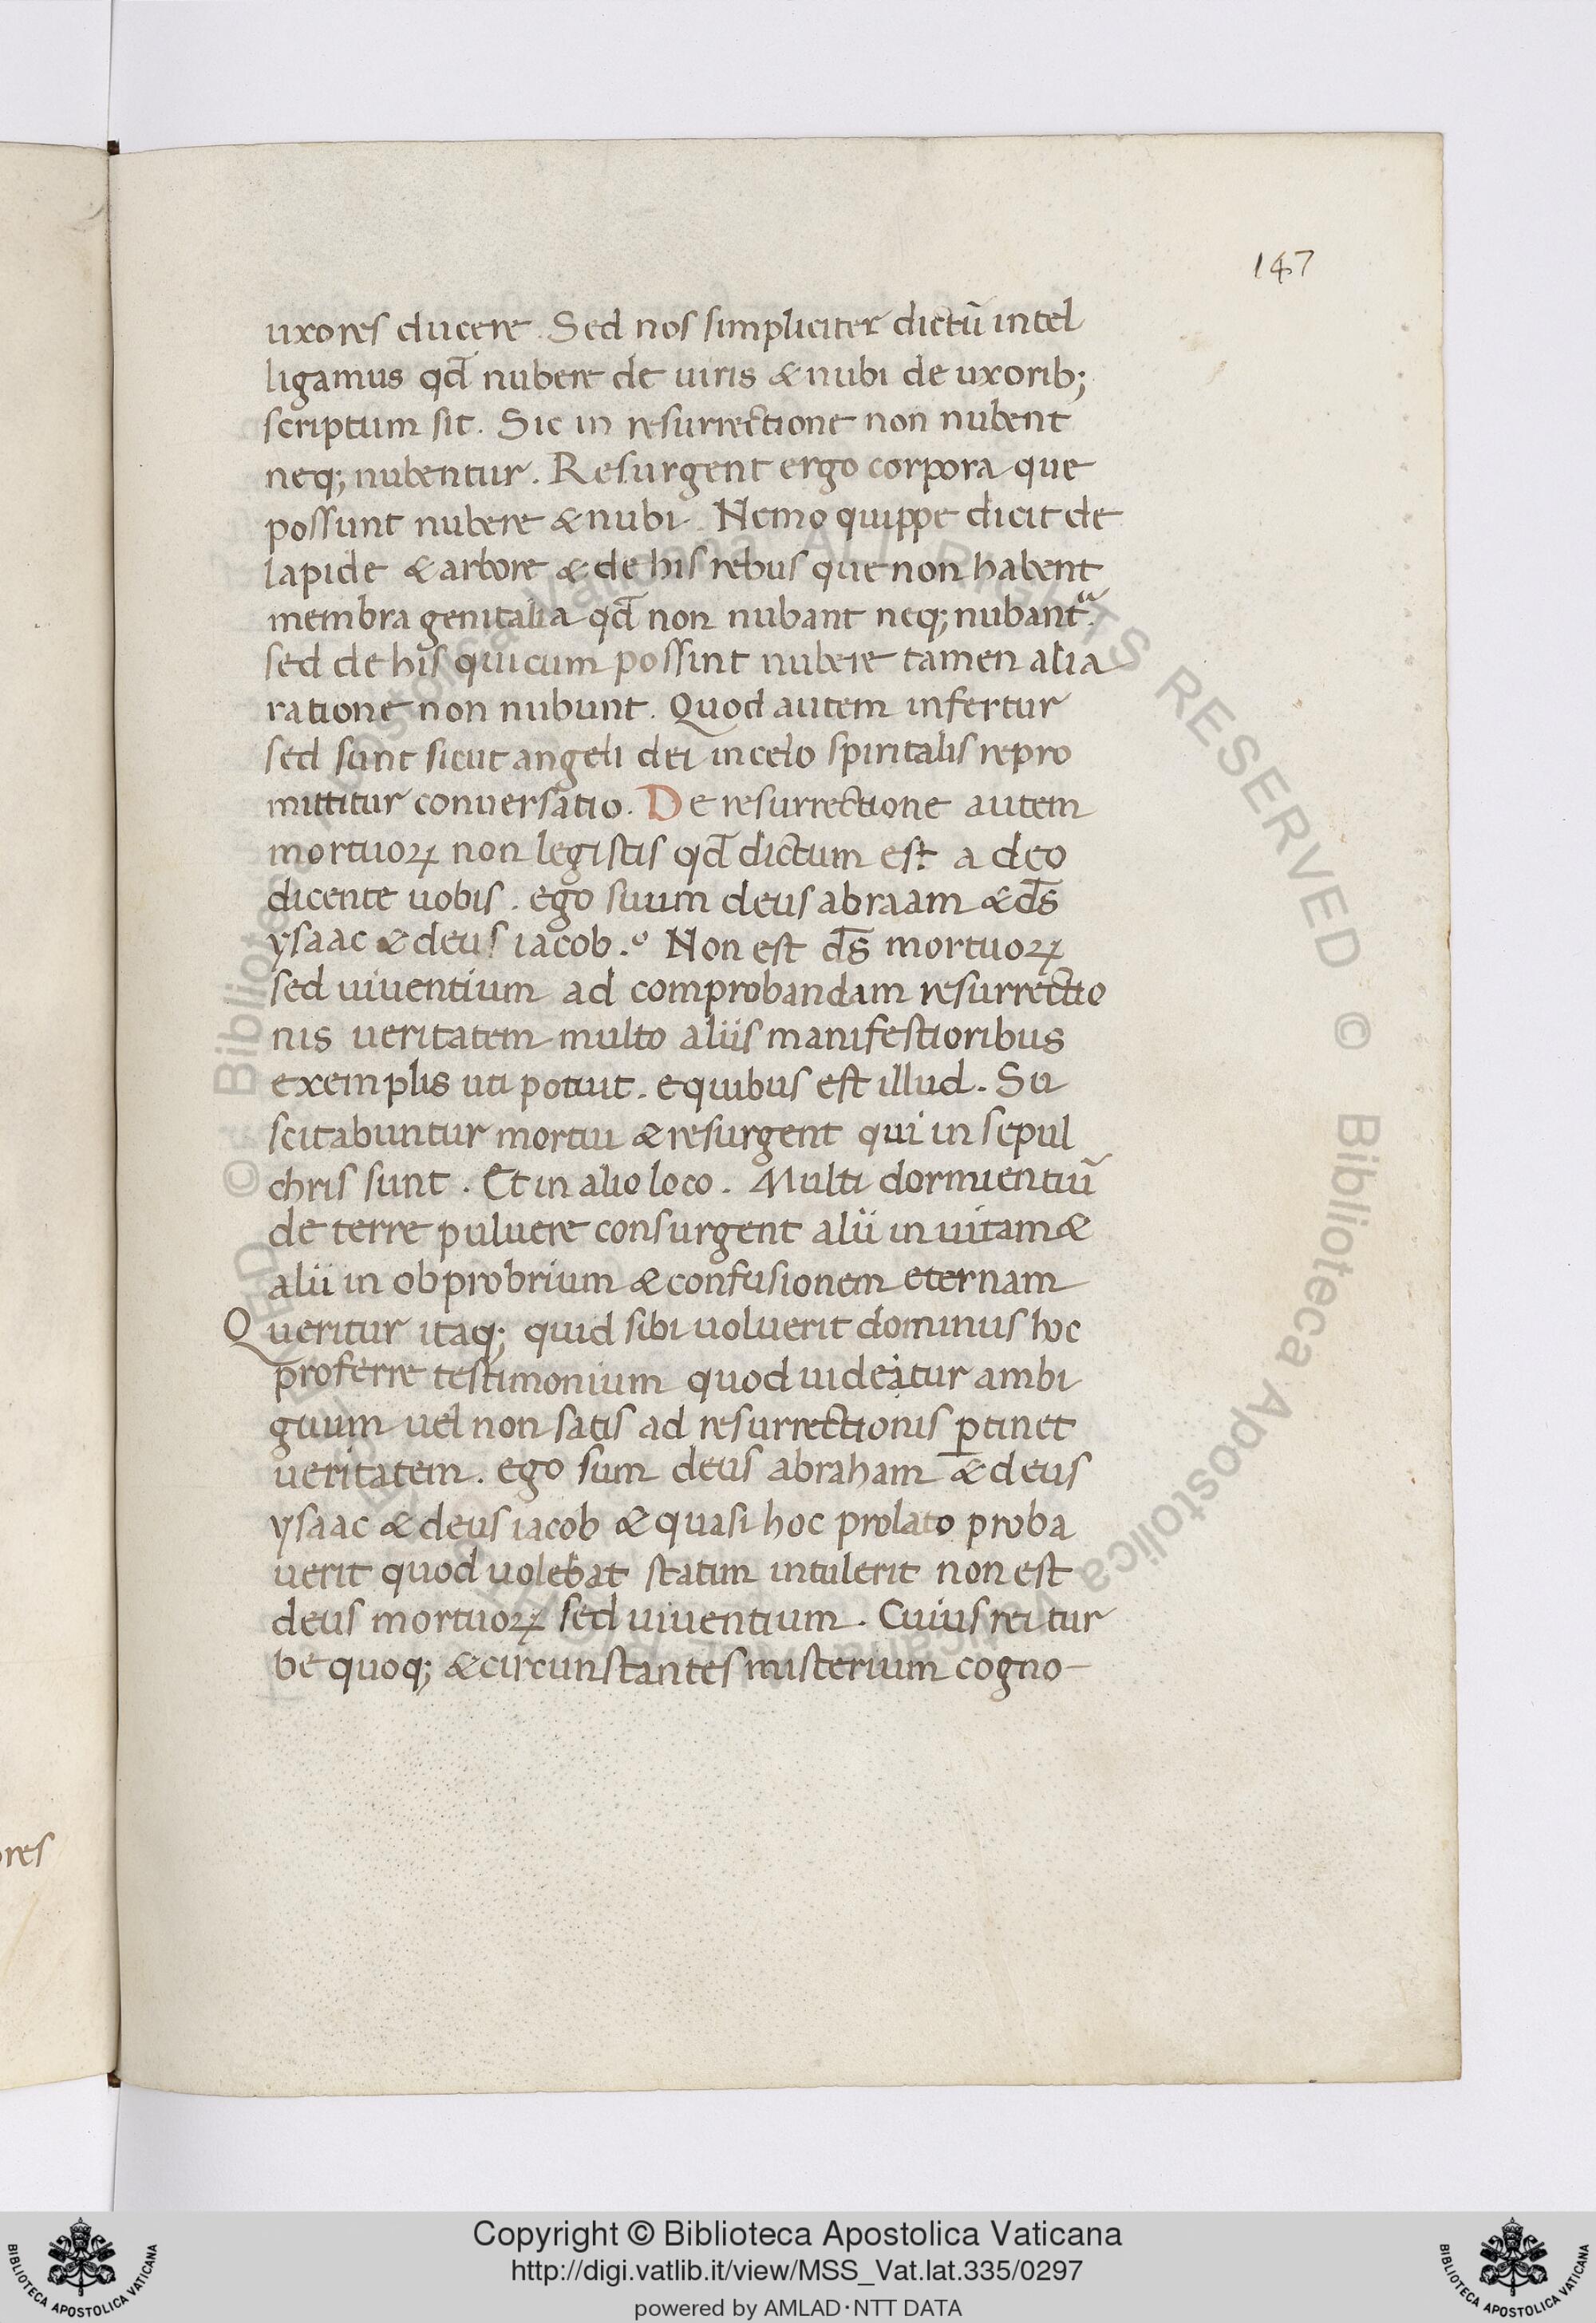 147
uxores ducere. Sed nos simpliciter dictū intel
ligamus qđ nubere de uiris & nubi de uxorib;
scriptum sit. Sic in resurrectione non nubent
neq; nubentur. Resurgent ergo corpora que
possunt nubere & nubi. Nemo quippe dicit de
lapide & arbore & de his rebus que non habent
membra genitalia qđ non nubant neq; nubant᷑.
sed de his qui cum possint nubere tamen alia
ratione non nubunt. Quod autem infertur
sed sunt sicut angeli dei in celo spiritalis repro
mittitur conuersatio. De resurrectione autem
mortuoꝝ non legistis qđ dictum est a deo
dicente uobis. ego suum deus abraam & d̄s
ysaac & deus iacob. Non est d̄s mortuoꝝ
sed uiuentium ad comprobandam resurrectio
nis ueritatem multo aliis manifestioribus
exemplis uti potuit. e quibus est illud. Su
scitabuntur mortui & resurgent qui in sepul
chris sunt. Et in alio loco. Multi dormientiū
de terre puluere consurgent alii in uitam &
alii in obprobrium & confusionem eternam
Queritur itaq; quid sibi uoluerit dominus hoc
proferre testimonium quod uideatur ambi
guum uel non satis ad resurrectionis ꝑtinet
ueritatem. ego sum deus abraham & deus
ysaac & deus iacob & quasi hoc prolato proba
uerit quod uolebat statim intulerit non est
deus mortuoꝝ sed uiuentium. Cuius rei tur
be quoq; & circunstantes misterium cogno-
ores
© Biblioteca Apostolica Vaticana ALL RIGHTS RESERVED
© Biblioteca Apostolica Vaticana ALL RIGHTS RESERVED
Copyright © Biblioteca Apostolica Vaticana
http://digi.vatlib.it/view/MSS_Vat.lat.335/0297
powered by AMLAD·NTT DATA
BIBLIOTECA APOSTOLICA VATICANA
BIBLIOTECA APOSTOLICA VATICANA